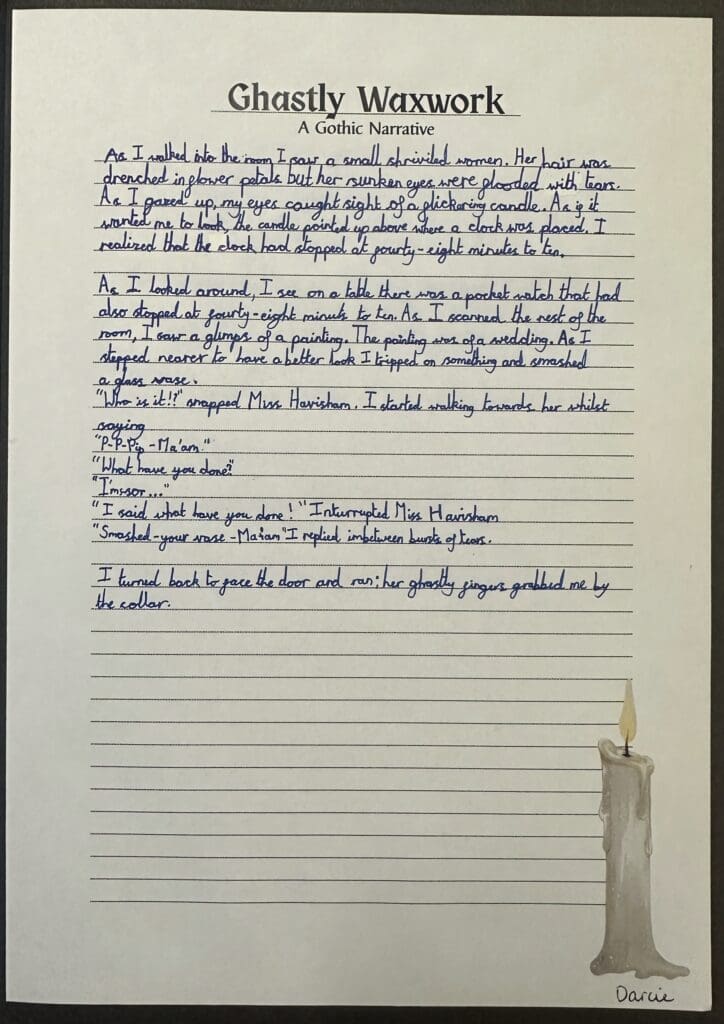 Ghastly Waxwork
A Gothic Narrative
As I walked into the room I saw a small shriviled women. Her hair was
drenched in flower petals but her sunken eyes were flooded with tears.
As I gazed up, my eyes caught sight of a flickering candle. As if it
wanted me to look, the candle pointed up above where a clock was placed. I
realized that the clock had stopped at fourty-eight minutes to ten.
As I looked around, I see on a table there was a pocket watch that had
also stopped at fourty-eight minuts to ten. As I scanned the rest of the
room, I saw a glimps of a painting. The painting was of a wedding. As I
stepped nearer to have a better look I tripped on something and smashed
a glass vase.
"Who is it!?" snapped Miss Havisham. I started walking towards her whilst
saying
"P-P-Pip -Ma'am."
"What have you done?"
"I'mssor..."
"I said what have you done!" Interrupted Miss Havisham
"Smashed-your vase -Ma'am" I replied imbetween bursts of tears.
I turned back to face the door and ran; her ghastly fingers grabbed me by
the collar.
Darcie